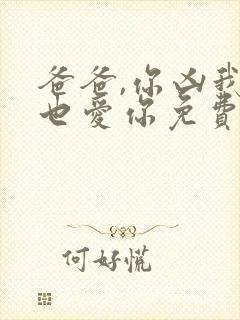 爸爸,你凶我
也爱你免費
何好慌